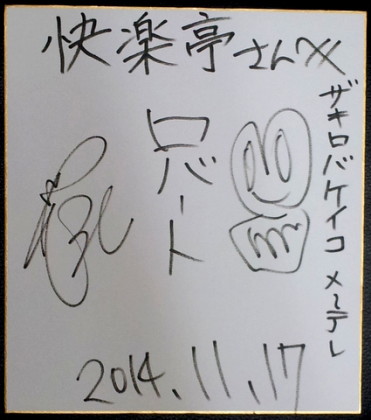 快楽亭さんへ
ザキロバケイコ メ〜テレ
ロバート
2014.11.17